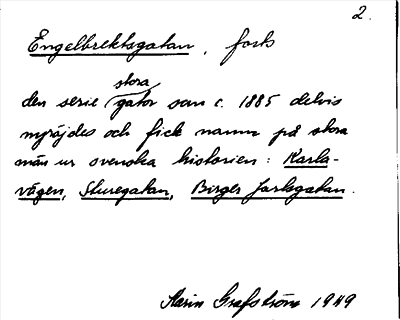 2.
Engelbrektsgatan, forts
stora
den serie gator som c. 1885 delvis
nyröjdes och fick namn på stora
män ur svenska historien: Karla-
vägen, Sturegatan, Birger Jarlsgatan.
Karin Grafström 1949